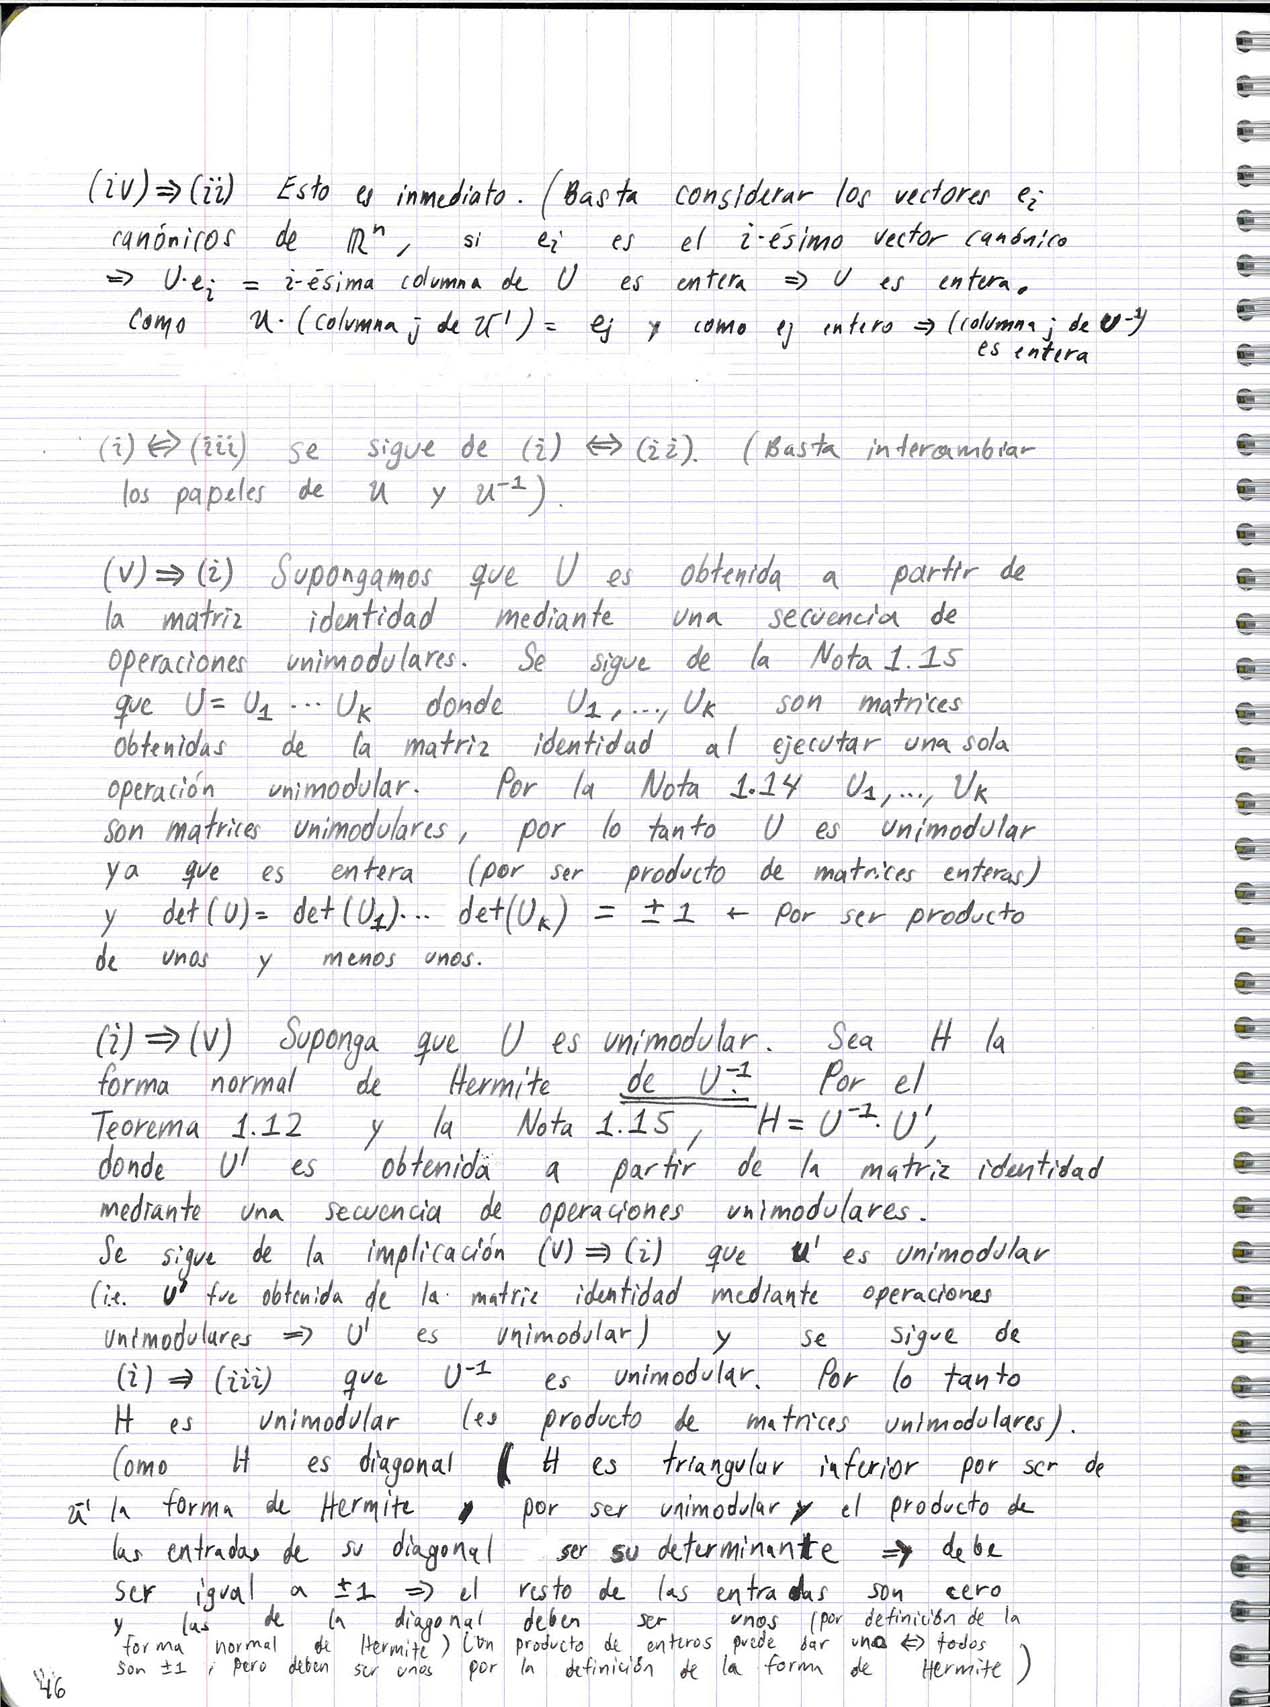 (iv) ⇒ (ii) Esto es inmediato. (Basta considerar los vectores e_i
canónicos de ℝ^n, si e_i es el i-ésimo vector canónico
⇒ U·e_i = i-ésima columna de U es entera ⇒ U es entera.
Como U·(columna j de U^-1) = e_j y como e_j entero ⇒ (columna j de U^-1)
es entera
(i) ⇔ (iii) se sigue de (i) ⇔ (ii). (Basta intercambiar
los papeles de U y U^-1).
(v) ⇒ (i) Supongamos que U es obtenida a partir de
la matriz identidad mediante una secuencia de
operaciones unimodulares. Se sigue de la Nota 1.15
que U = U_1 ... U_k donde U_1, ..., U_k son matrices
obtenidas de la matriz identidad al ejecutar una sola
operación unimodular. Por la Nota 1.14 U_1, ..., U_k
son matrices unimodulares, por lo tanto U es unimodular
ya que es entera (por ser producto de matrices enteras)
y det(U) = det(U_1)... det(U_k) = ±1 ← por ser producto
de unos y menos unos.
(i) ⇒ (v) Suponga que U es unimodular. Sea H la
forma normal de Hermite de U^-1. Por el
Teorema 1.12 y la Nota 1.15, H = U^-1·U',
donde U' es obtenida a partir de la matriz identidad
mediante una secuencia de operaciones unimodulares.
Se sigue de la implicación (v) ⇒ (i) que U' es unimodular
(i.e. U' fue obtenida de la matriz identidad mediante operaciones
unimodulares ⇒ U' es unimodular) y se sigue de
(i) ⇒ (iii) que U^-1 es unimodular. Por lo tanto
H es unimodular (es producto de matrices unimodulares).
Como H es diagonal ( H es triangular inferior por ser de
U^-1 la forma de Hermite, por ser unimodular y el producto de
las entradas de su diagonal ser su determinante ⇒ debe
ser igual a ±1 ⇒ el resto de las entradas son cero
y las de la diagonal deben ser unos (por definición de la
forma normal de Hermite) (un producto de enteros puede dar uno ⇔ todos
son ±1, pero deben ser unos por la definición de la forma de Hermite)
46